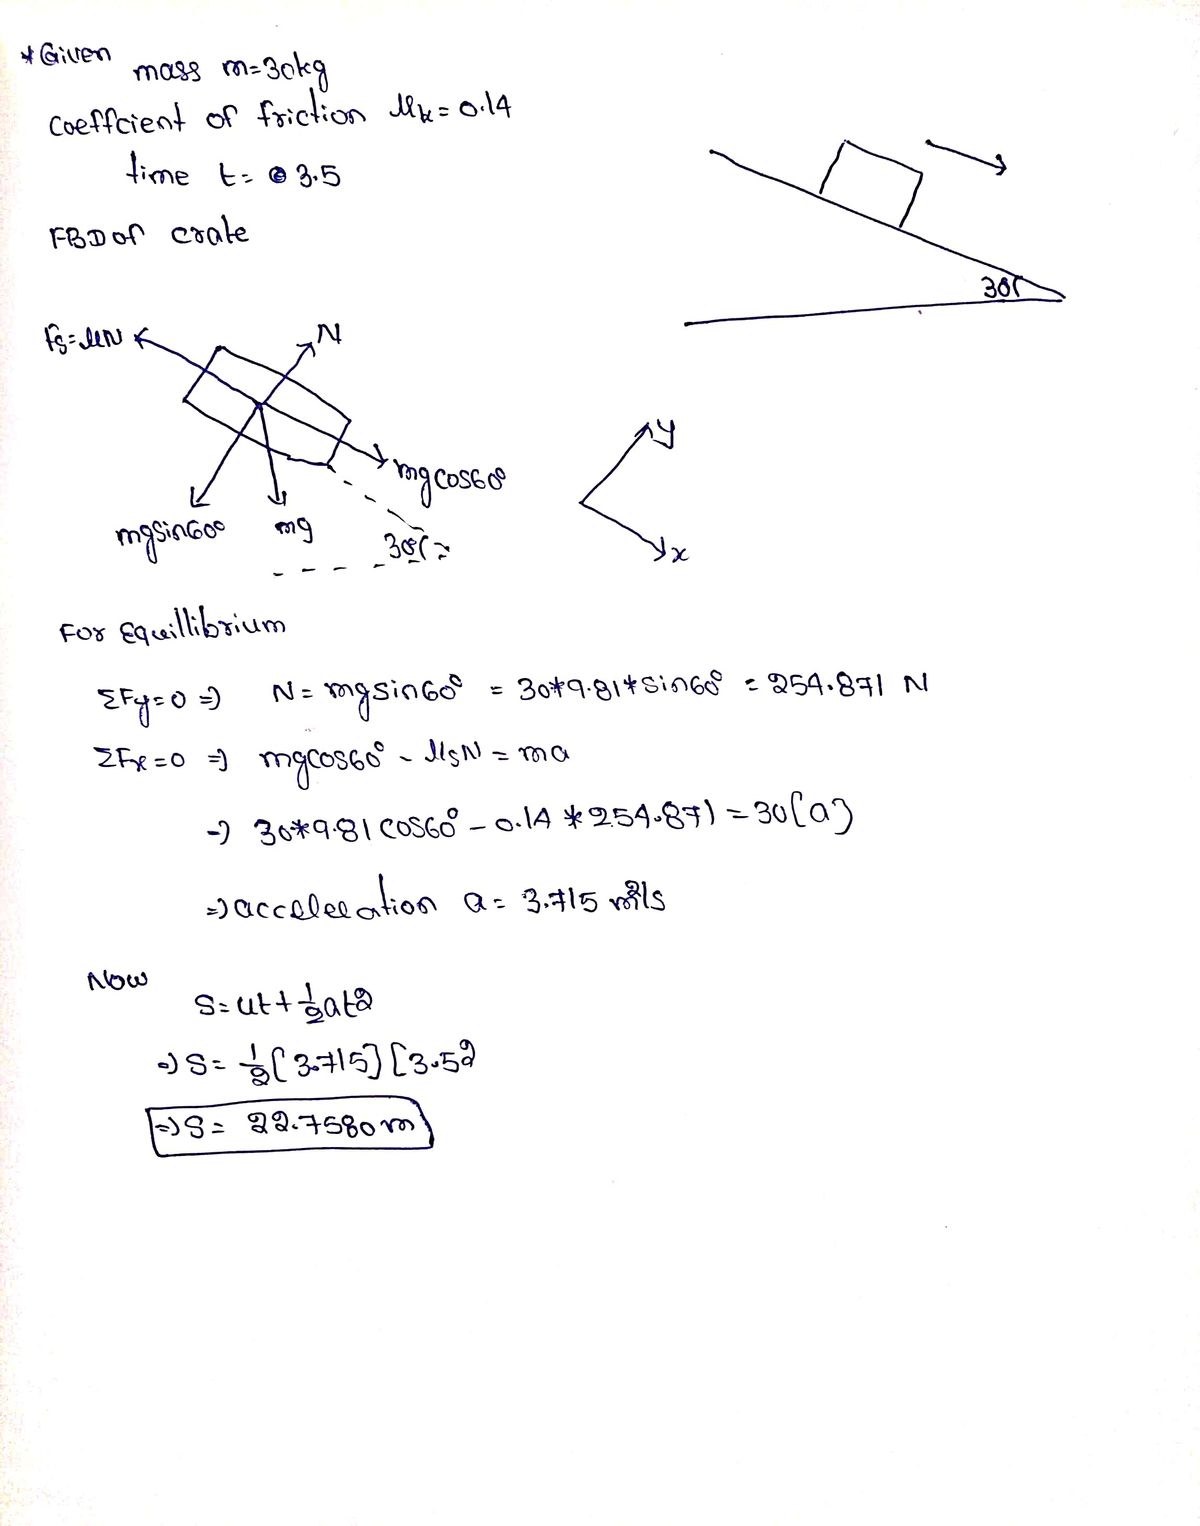 * Given
mass m=30kg
Coeffcient of friction μk = 0.14
time t= 3.5
FBD of crate
30°
fs=μN
N
mgcos60°
mgsin60°
mg
30°
y
x
For Equillibrium
ΣFy=0 ⇒ N = mgsin60° = 30*9.81*sin60° = 254.871 N
ΣFx=0 ⇒ mgcos60° - μsN = ma
⇒ 30*9.81 cos60° - 0.14 * 254.871 = 30(a)
⇒ acceleeation a = 3.715 m²/s
Now
S = ut + 1/2 at2
⇒ S = 1/2 [3.715] [3.52
⇒ S = 22.7580 m